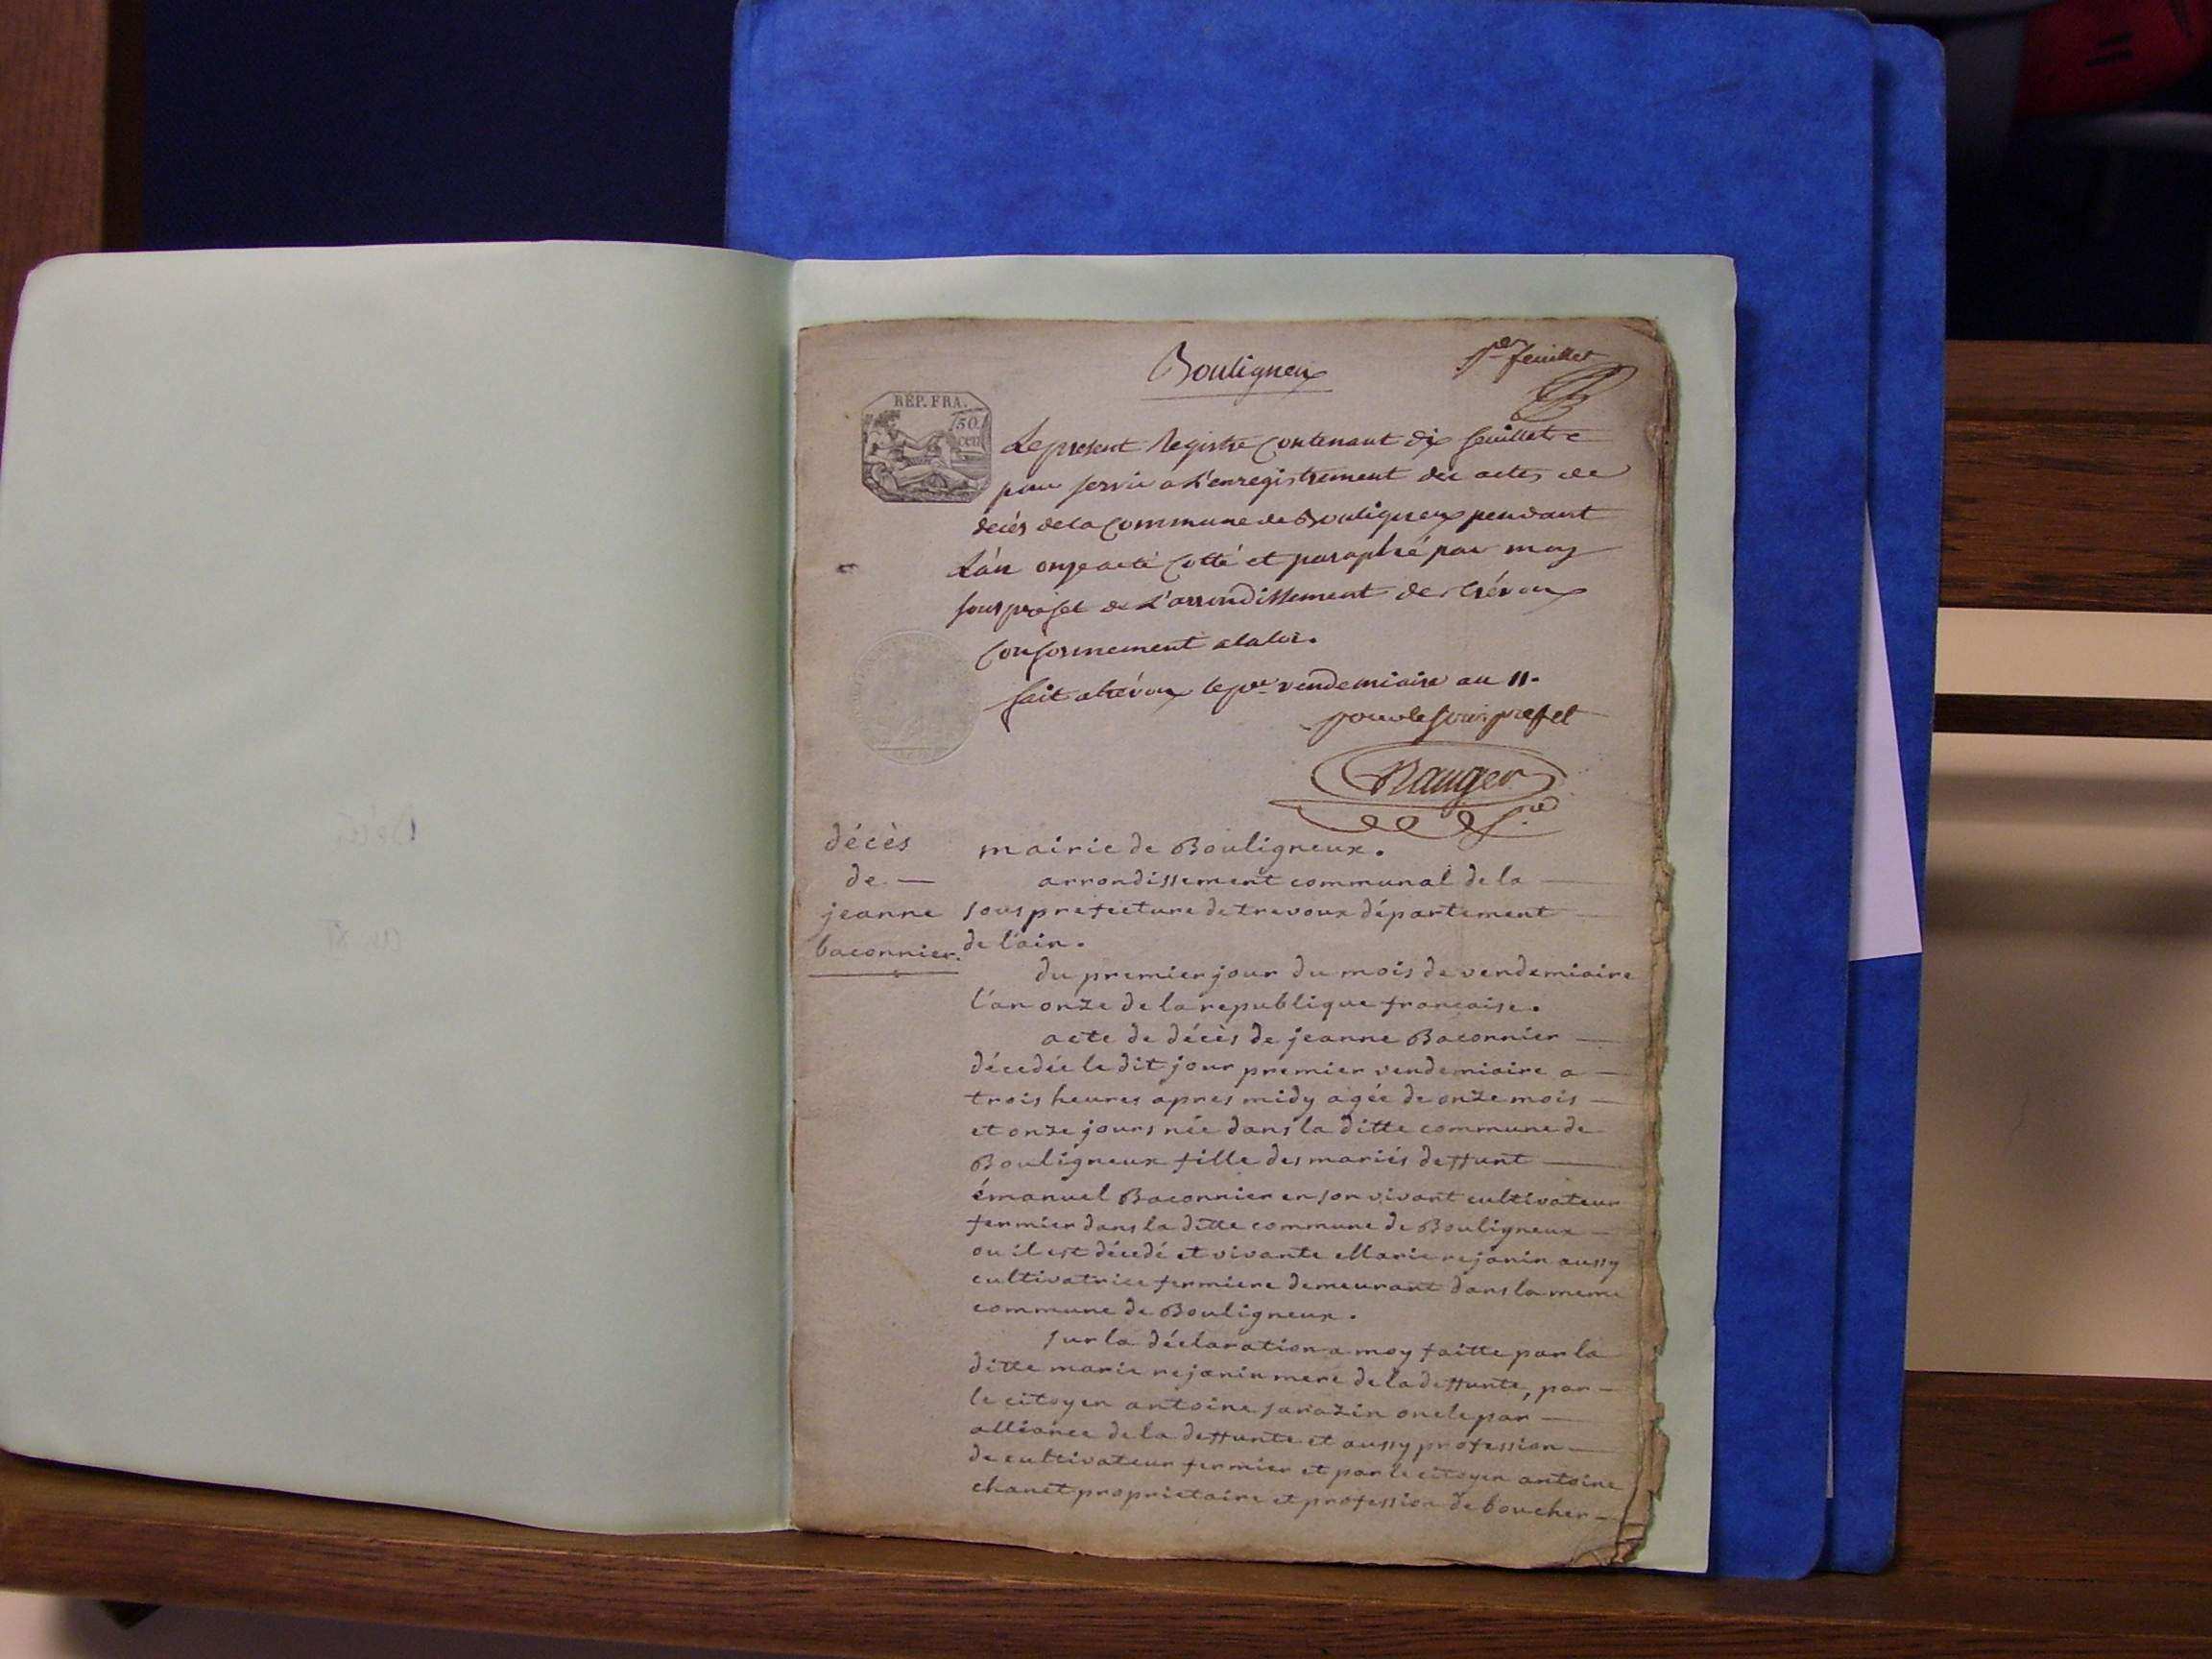 Bouligneux
1er feuillet
RÉP. FRA.
50
cen
Le present Registre contenant dix feuillets
pour servir a L'enregistrement des actes de
décès de la Commune de Bouligneux pendant
L'an onze a été Cotté et paraphé par moy
sous préfet de L'arrondissement de trévoux
Conformement a la loi.
fait a trévoux le pr vendemiaire an 11.
pour le sous prefet
décès
de —
jeanne
baconnier.
mairie de Bouligneux.
arrondissement communal de la —
sous prefecture de trevoux département
de l'ain.
du premier jour du mois de vendemiaire
l'an onze de la republique francaise.
acte de décès de jeanne Baconnier —
décedée le dit jour premier vendemiaire a —
trois heures apres midy agée de onze mois —
et onze jours née dans la ditte commune de
Bouligneux fille des mariés deffunt —
émanuel Baconnier en son vivant cultivateur
fermier dans la ditte commune de Bouligneux —
ou il est décedé et vivante Marie rejanin aussy
cultivatrice fermiere demeurant dans la meme
commune de Bouligneux.
sur la déclaration a moy faitte par la
ditte marie rejanin mere de la deffunte, par —
le citoyen antoine sarazin oncle par —
alliance de la deffunte et aussy profession —
de cultivateur fermier et par le citoyen antoine
chanet proprietaire et profession de boucher —